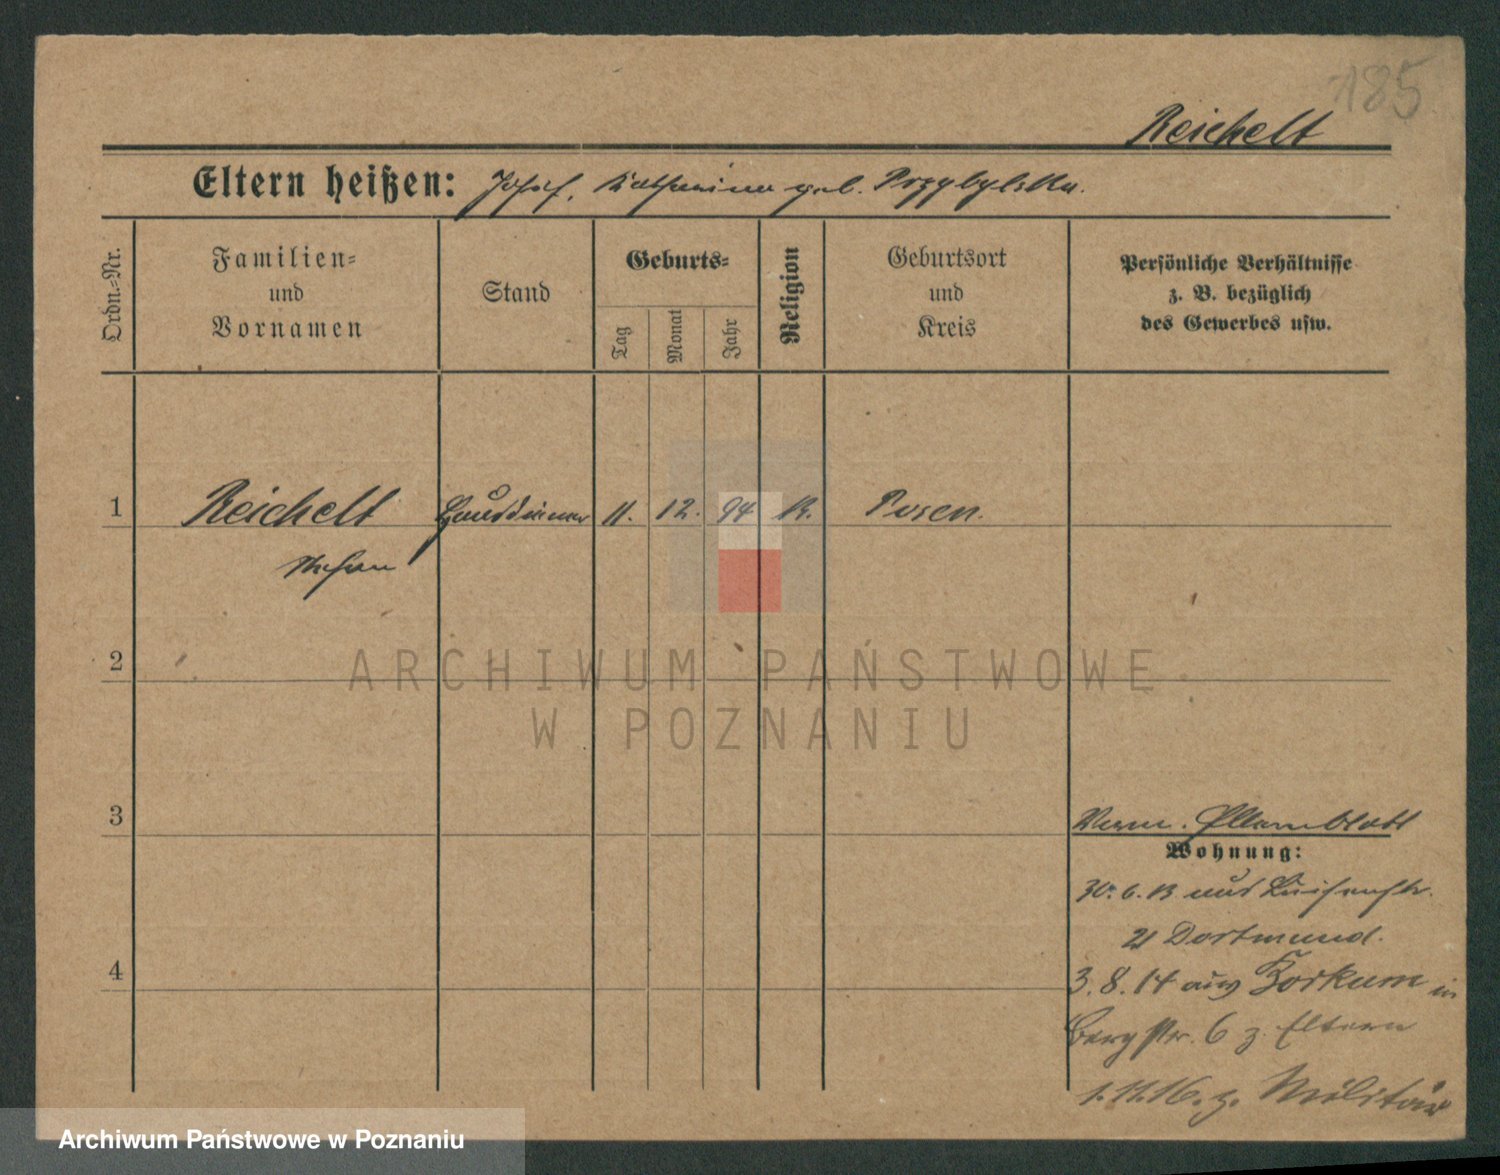 185
Reichelt
Eltern heißen: Josef, Katharina geb. Przybylska.
Ordn.-Nr.
Familien-
und
Vornamen
Stand
Geburts-
Tag
Monat
Jahr
Religion
Geburtsort
und
Kreis
Persönliche Verhältnisse
z. B. bezüglich
des Gewerbes usw.
1 Reichelt Hausdiener 11. 12. 94 K. Posen.
Stefan
2
ARCHIWUM PAŃSTWOWE
W POZNANIU
3
Elternblatt
Wohnung:
30. 6. 13 aus Luisenstr.
21 Dortmund.
4
3. 8. 14 aus Borkum in
Bergstr. 6 z. Eltern
1. 11. 16. z. Militär
Archiwum Państwowe w Poznaniu